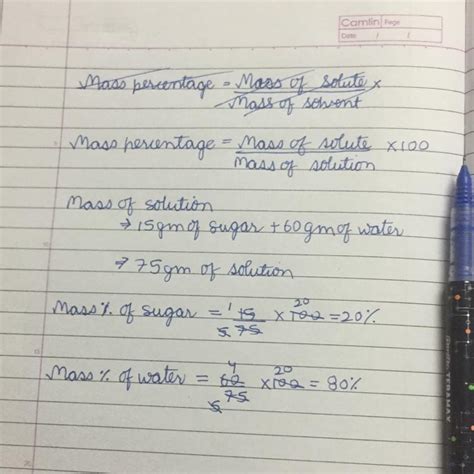 Camlin Page
Date / /
Mass percentage = Mass of solute x
Mass of solvent
Mass percentage = Mass of solute x100
Mass of solution
Mass of solution
→ 15gm of sugar + 60gm of water
→ 75gm of solution
Mass % of sugar = 1 15 x 20 100 = 20%
5 75
Mass % of water = 4 60 x 20 100 = 80%
5 75